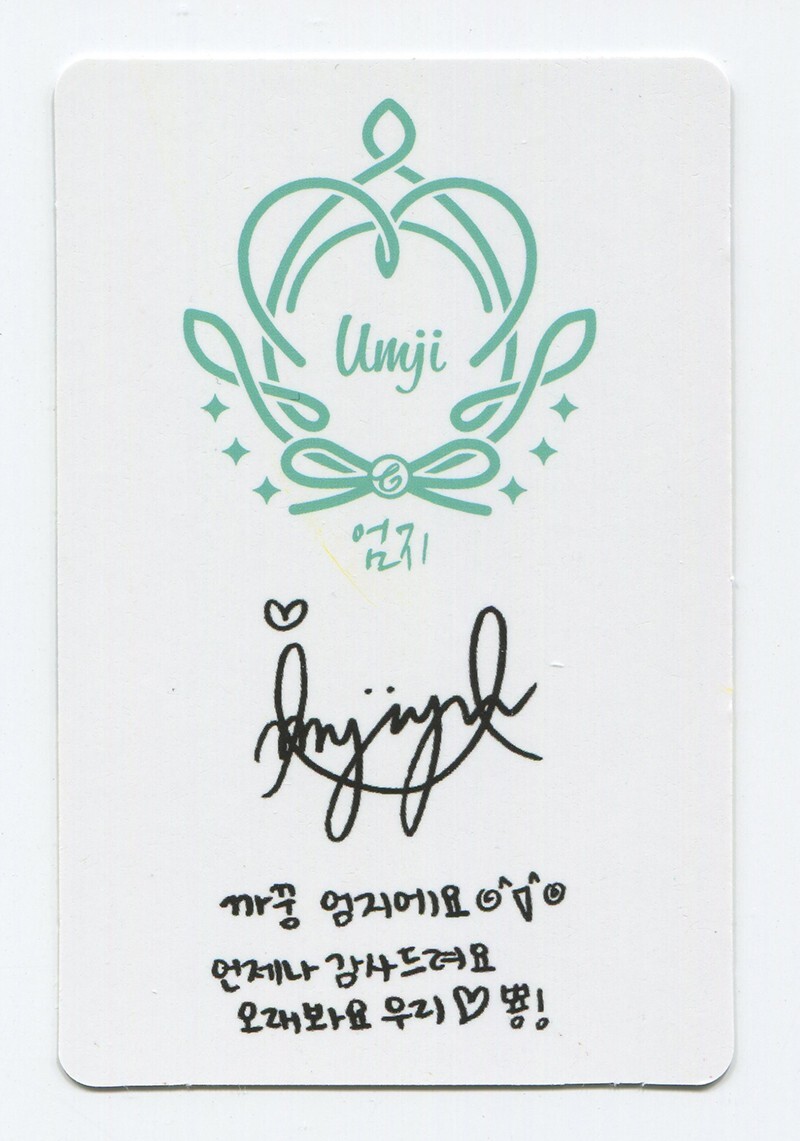 Umji
G
엄지
까꿍 엄지에요
언제나 감사드려요
오래봐요 우리♡ 뿅!